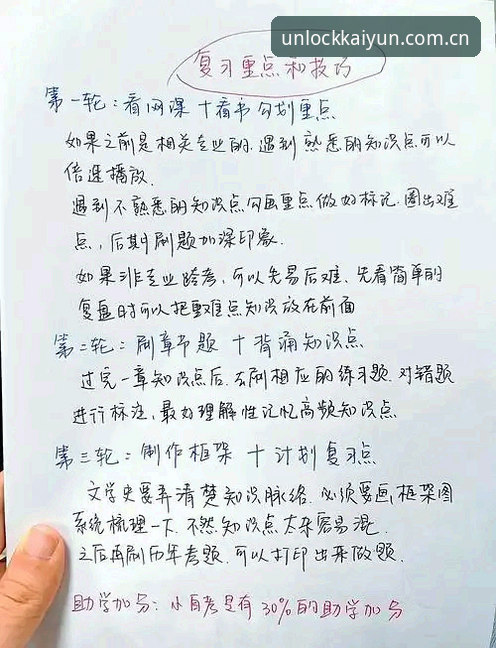 unlockkaiyun.com.cn
复习重点和技巧
第一轮：看网课＋看书勾划重点
如果之前是相关专业的，遇到熟悉的知识点可以
倍速播放．
遇到不熟悉的知识点勾画重点做好标记．圈出难
点，后期刷题加深印象．
如果非专业跨考，可以先易后难．先看简单的
复盘时可以把重难点知识放在前面
第二轮：刷章节题＋背诵知识点
过完一章知识点后．去刷相应的练习题．对错题
进行标注．最好理解性记忆高频知识点．
第三轮：制作框架＋计划复习点
文学史要弄清楚知识脉络．必须要画框架图
系统梳理一下．不然知识点太杂容易混．
之后再刷历年考题．可以打印出来做题．
助学加分：小自考是有30%的助学加分